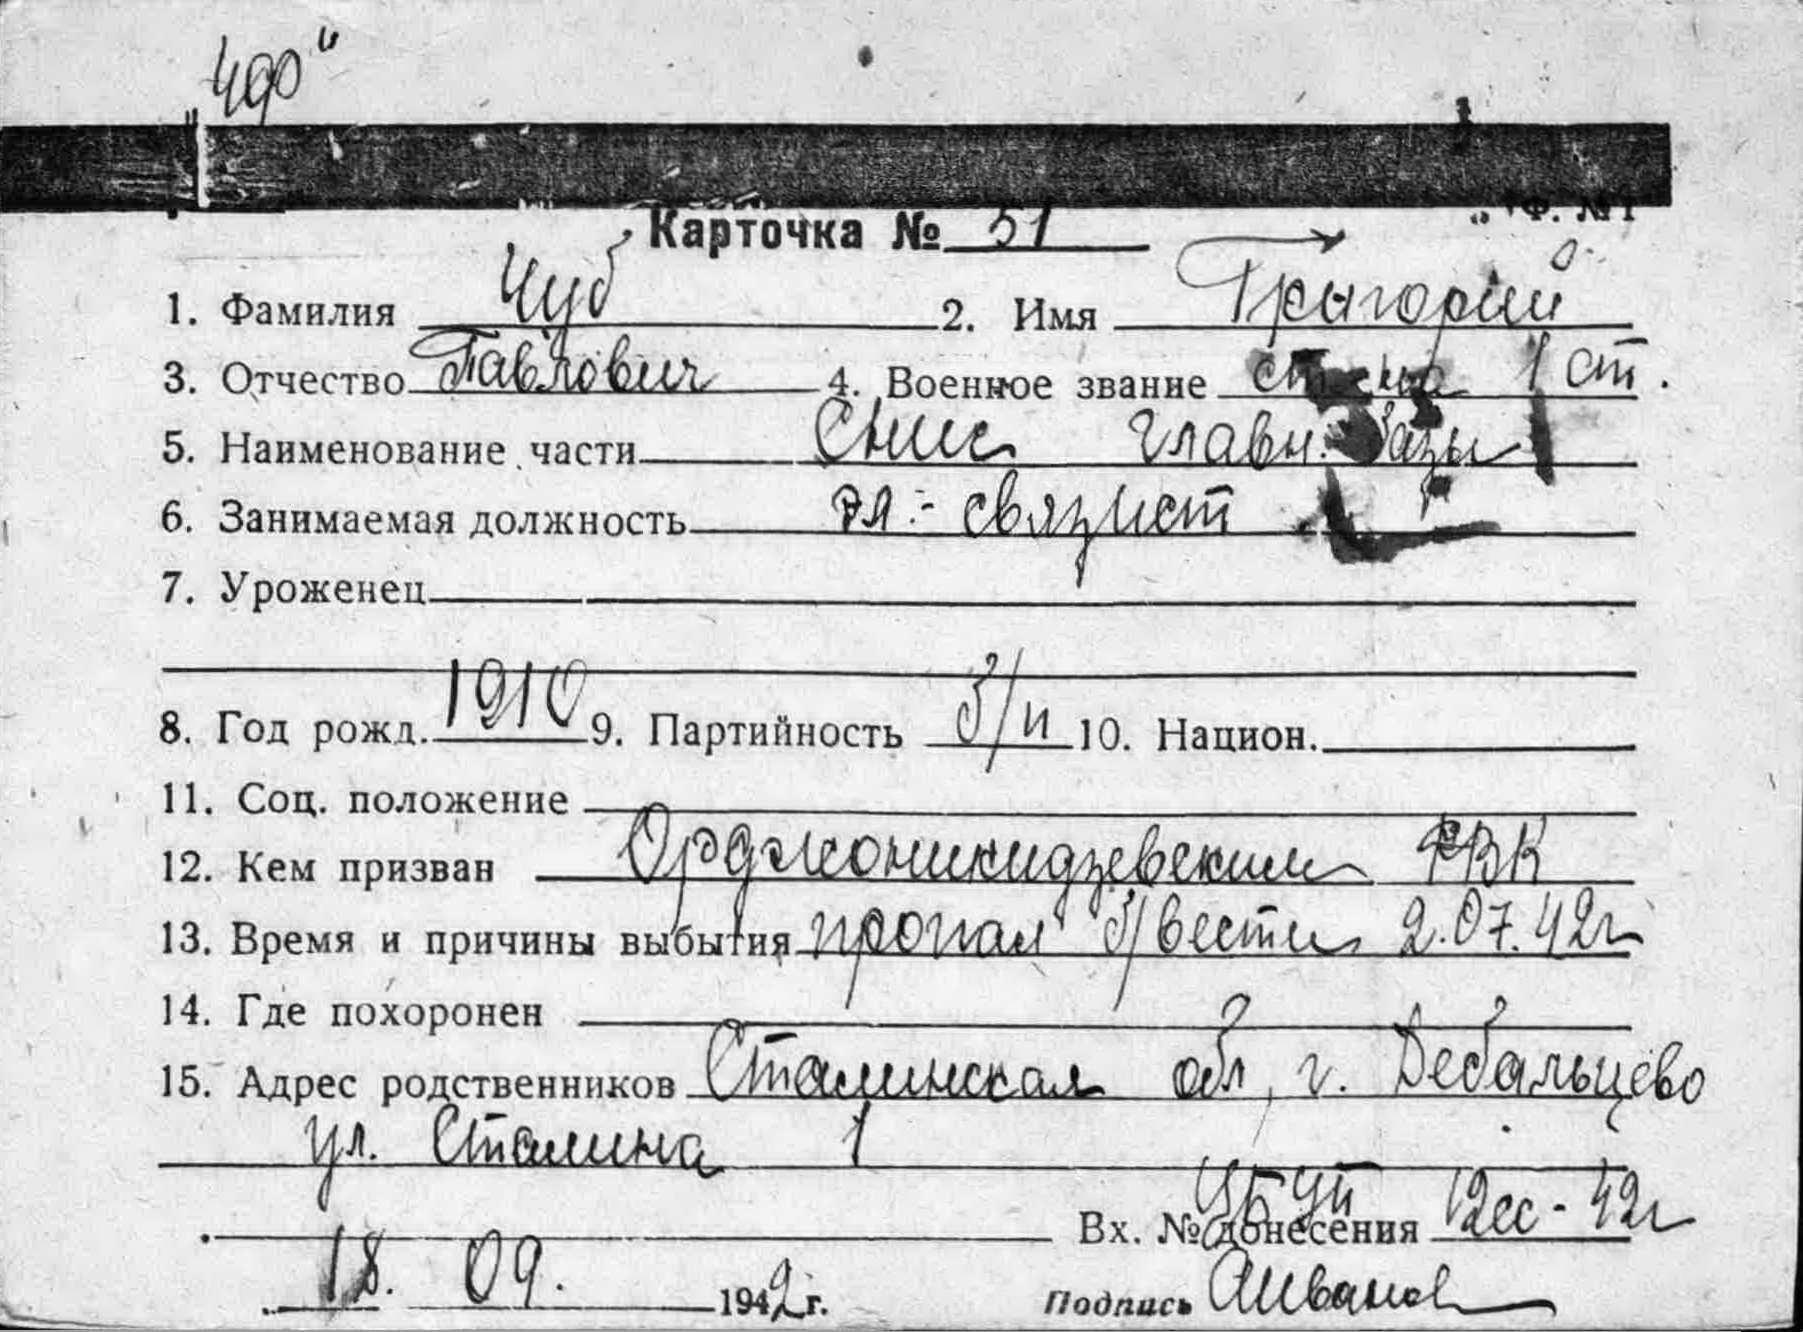 "ЧФ"
Ф. №1
Карточка № 51
1. Фамилия Чуб 2. Имя Григорий
3. Отчество Павлович 4. Военное звание 1 ст.
5. Наименование части Снис главн. базы
6. Занимаемая должность эл.- связист
7. Уроженец
8. Год рожд. 1910 9. Партийность б/п 10. Национ.
11. Соц. положение
12. Кем призван Орджоникидзевским РВК
13. Время и причины выбытия пропал б/вести 2.07.42г
14. Где похоронен
15. Адрес родственников Сталинская обл, г. Дебальцево
ул. Сталина 1
Вх. № донесения 12сс - 42г
18. 09. 1942 г. Подпись